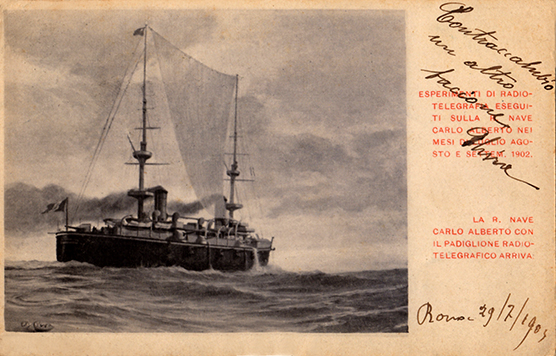 Contraccabmbio
un altro
ESPERIMENTI DI RADIO-
TELEGRAFIA ESEGUI-
TI SULLA R. NAVE
CARLO ALBERTO NEI
MESI DI LUGLIO AGO-
STO E SETTEM. 1902.
LA R. NAVE
CARLO ALBERTO CON
IL PADIGLIONE RADIO-
TELEGRAFICO ARRIVA:
Roma 29/7/1903